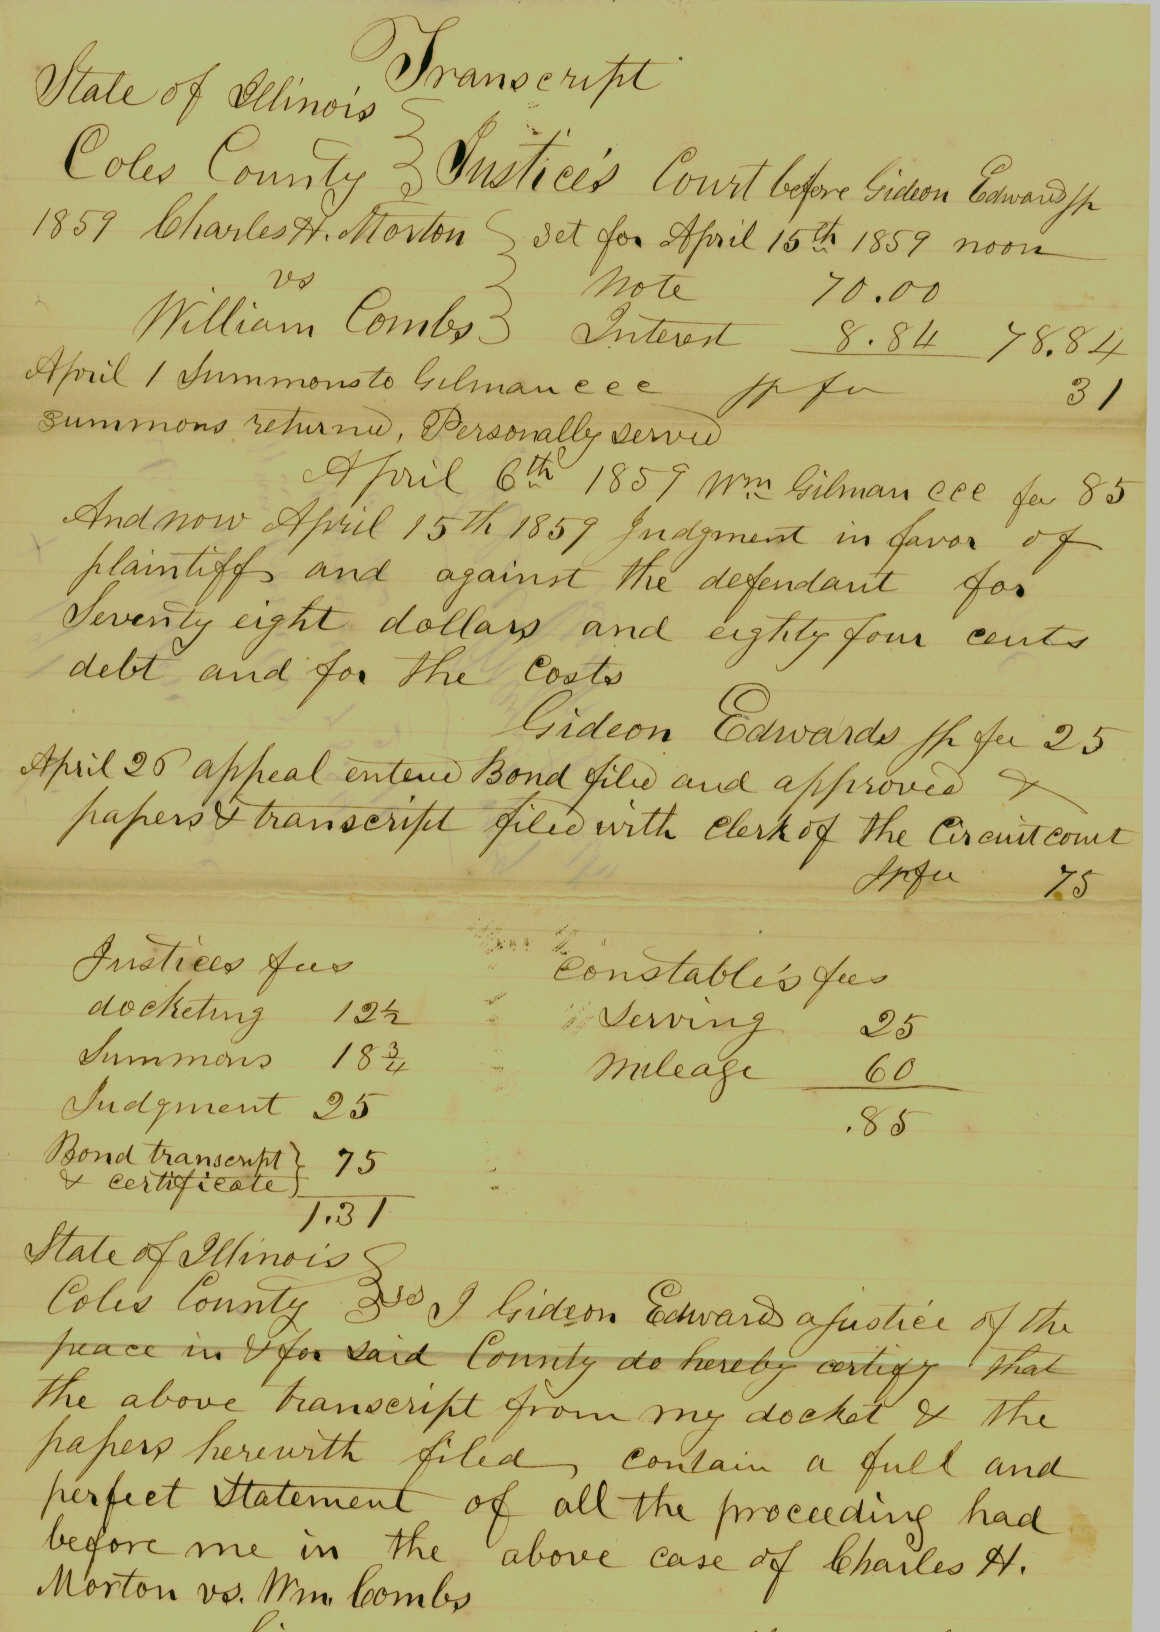 Transcript
State of Illinois
Coles County } Justice's Court before Gideon Edwards jp
1859 Charles H. Morton } set for April 15th 1859 noon
vs Note 70.00
William Combs } Interest 8.84 78.84
April 1 Summons to Gilman ccc jp fee 31
Summons returned, Personally served
April 6th 1859 Wm Gilman ccc fee 85
And now April 15th 1859 Judgment in favor of
plaintiff and against the defendant for
Seventy eight dollars and eighty four cents
debt and for the Costs
Gideon Edwards jp fee 25
April 26 appeal entered Bond filed and approved &
papers & transcript filed with Clerk of the Circuit court
jp fee 75
Justices fees Constable's fees
docketing 12½ Serving 25
Summons 18¾ Mileage 60
Judgment 25 .85
Bond transcript
& certificate } 75
1.31
State of Illinois
Coles County } ss I Gideon Edwards a justice of the
peace in & for said County do hereby certify that
the above transcript from my docket & the
papers herewith filed, contain a full and
perfect Statement of all the proceeding had
before me in the above case of Charles H.
Morton vs. Wm. Combs